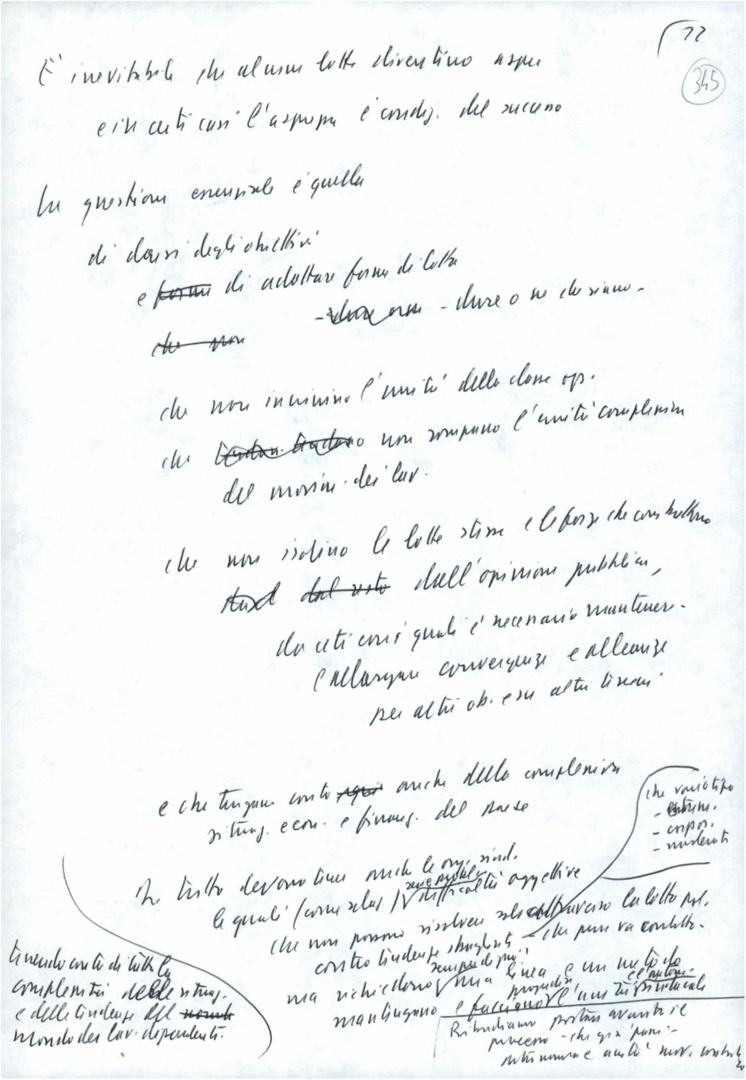 77
345
E' inevitabile che alcune lotte diventino aspre
e in certi casi l'asprezza è condiz. del successo
La questione essenziale è quella
di darsi degli obiettivi
e forme di adottare forme di lotta
- dure o no che siano -
che non
che non incrinino l'unità della classe op.
che non rompano l'unità complessiva
del movim. dei lav.
che non isolino le lotte stesse e le forze che combattono
dal resto dall'opinione pubblica,
da ceti con i quali è necessario mantener-
e allargare convergenze e alleanze
per altri ob. e su altri terreni
e che tengano conto anche della complessiva
situaz. econ. e finanz. del paese
che vario tipo
- estrem.
- corpor.
- moderati
Di tutto devono tener conto le org. sind.
le quali (come sapete) difficoltà oggettive
che non possono risolvere solo attraverso la lotta pol.
contro tendenze sbagliate - che pure va condotta -
sempre di più
ma richiedono una linea e un metodo
mantengano e facciano l'unità sindacale
tenendo conto di tutta la
complessità della situaz.
e delle tendenze del
mondo dei lav. dipendenti.
portare avanti il
processo - che già
autonomia e unità mov.